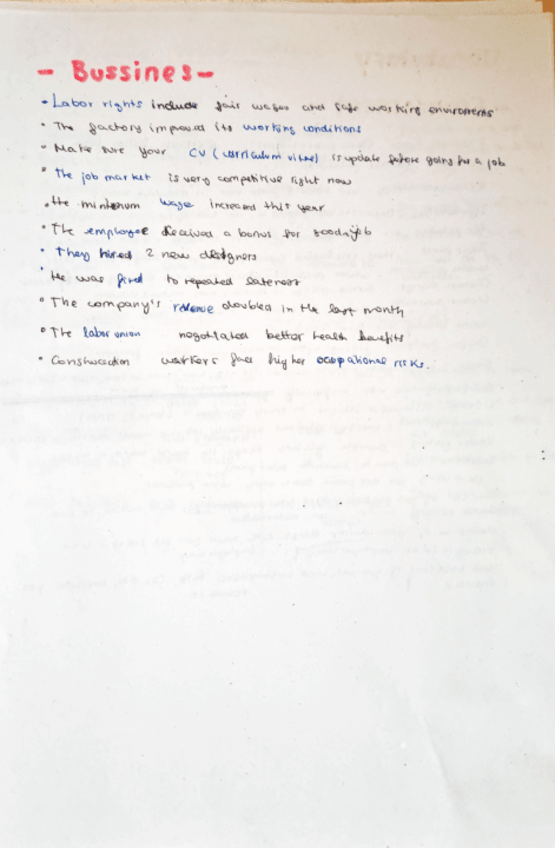 - Bussines -
• Labor rights include fair wages and safe working enviroments
• The factory improved its working conditions
• Make sure your CV (curriculum vitae) is update before going for a job
• The job market is very competitive right now
• the minimum wage increased this year
• The employee received a bonus for good job
• They hired 2 new designers
• He was fired to repeated lateness
• The company's revenue doubled in the last month
• The labor union negotiated better health benefits
• Construction workers face higher ocupational risks.